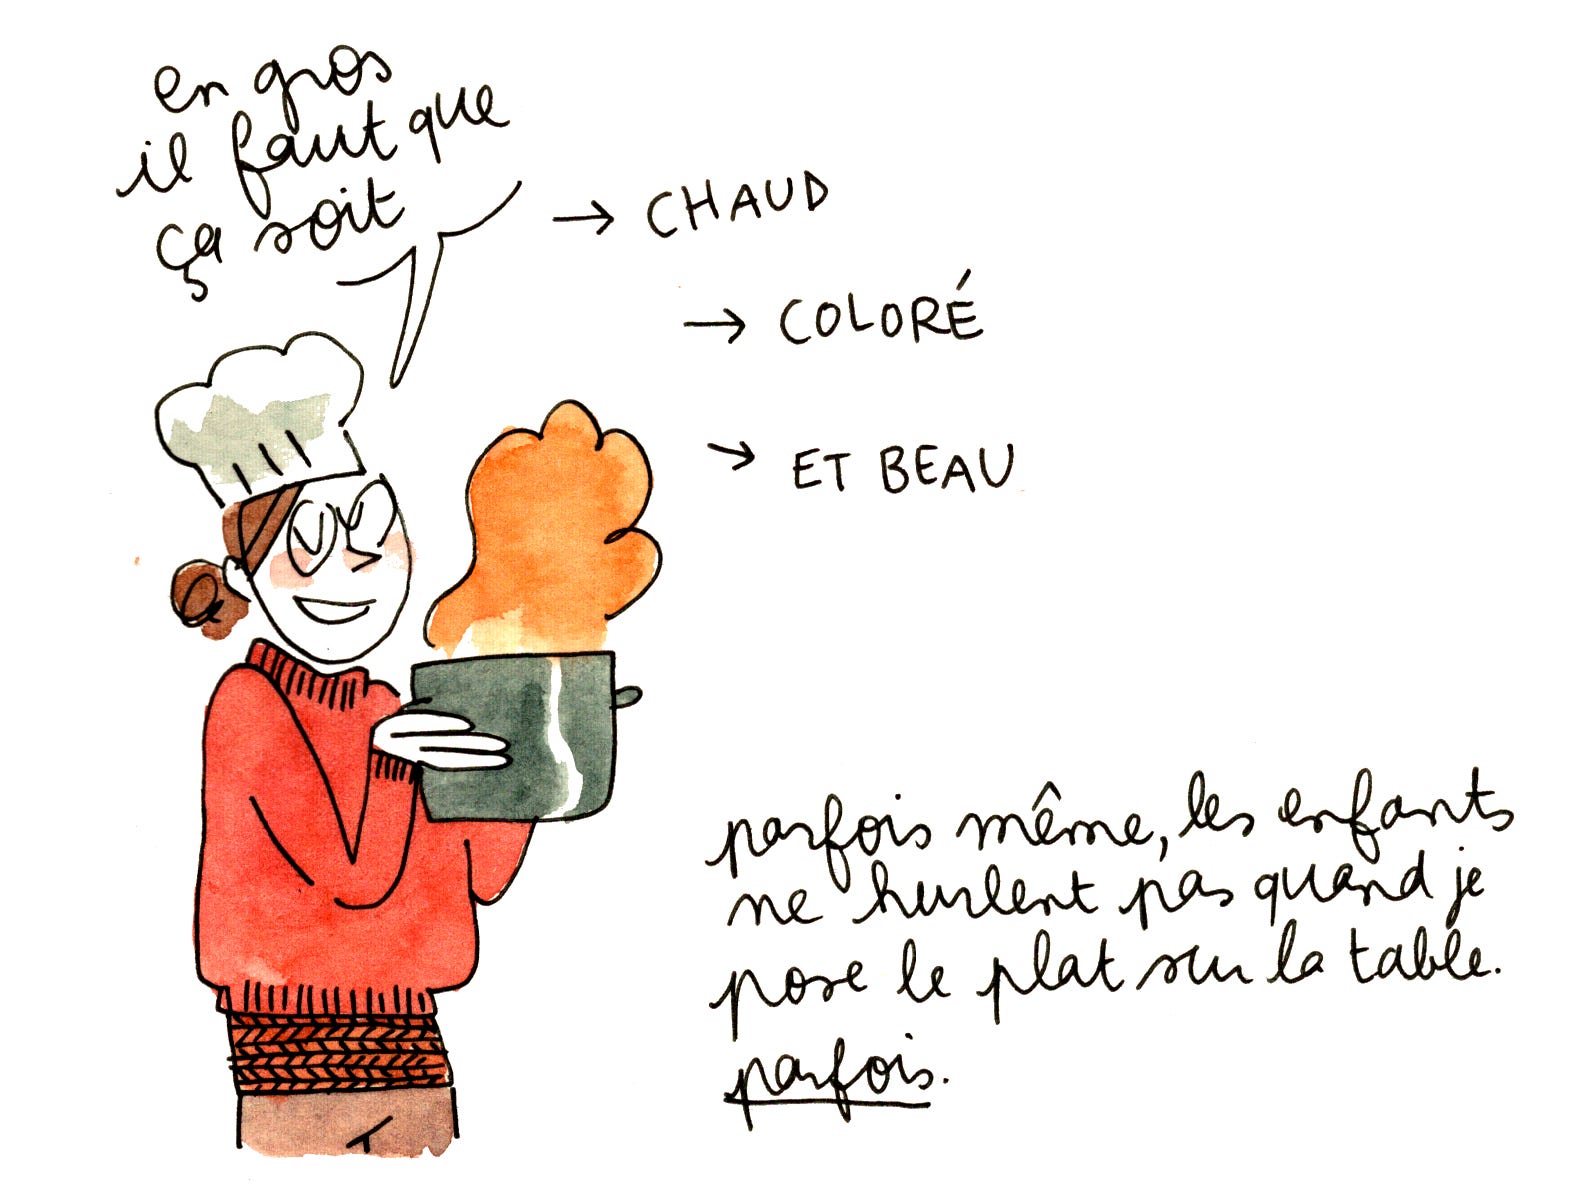 en gros
il faut que
ça soit
→ CHAUD
→ COLORÉ
→ ET BEAU
parfois même, les enfants
ne hurlent pas quand je
pose le plat sur la table.
parfois.